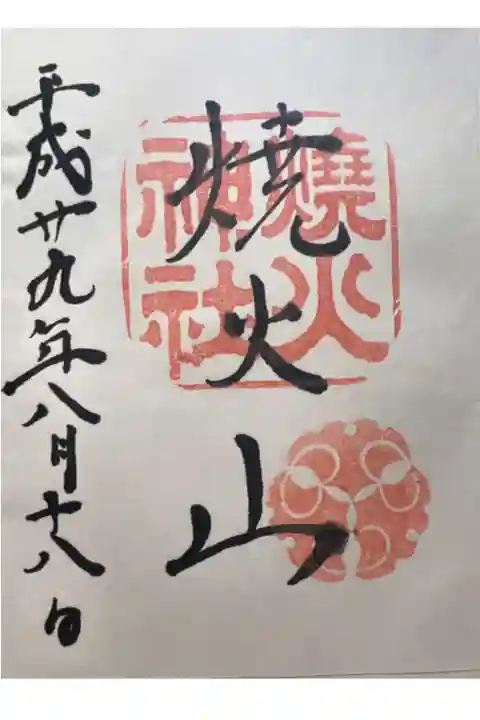 燒火
神社
焼火山
平成廿九年八月十八日